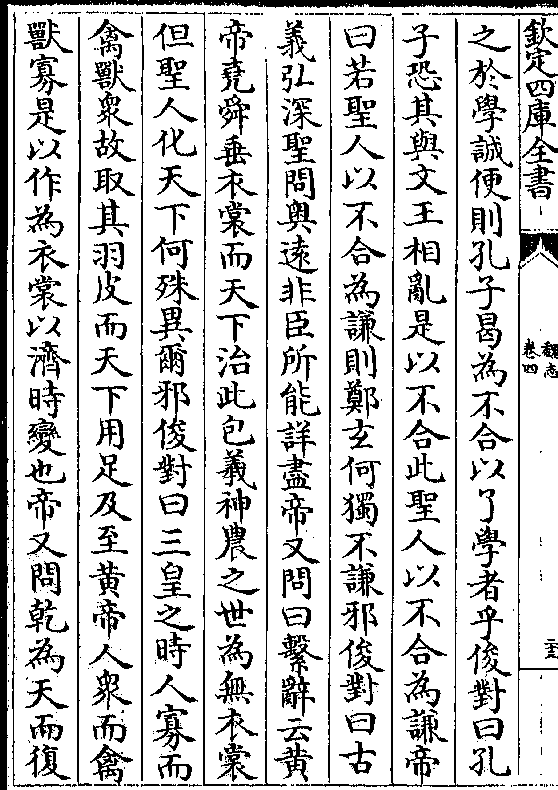 欽定四庫全書
魏志
卷四
之於學誠便則孔子曷為不合以了學者乎俊對曰孔
子恐其與文王相亂是以不合此聖人以不合為謙帝
曰若聖人以不合為謙則鄭玄何獨不謙邪俊對曰古
義弘深聖問奥遠非臣所能詳盡帝又問曰繫辭云黄
帝堯舜垂衣裳而天下治此包羲神農之世為無衣裳
但聖人化天下何殊異爾邪俊對曰三皇之時人寡而
禽獸衆故取其羽皮而天下用足及至黄帝人衆而禽
獸寡是以作為衣裳以濟時變也帝又問乾為天而復